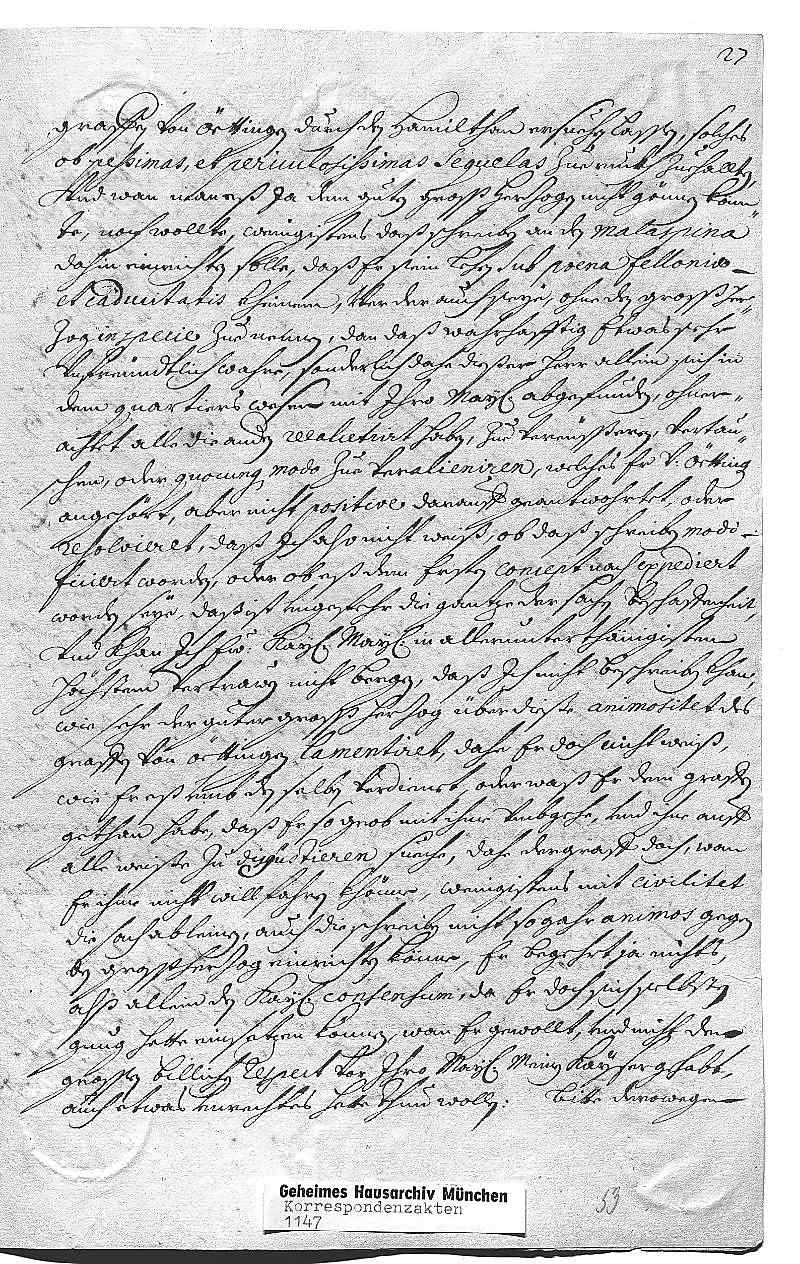 27
graffen von Öettingen durch den Hamilthon ersuchen lassen, solches
ob pessimas, et periculosissimas sequelas zue rückh zuehalten,
Und wan man eß Ja dem guten Groß Herzogen nicht gönnen kön„
te, noch wollte, wenigistens daß schreiben an den Malaspina
dahin einrichten solle, daß Er sein Lehen sub poena felloniae
et caducitatis kheinem, Wer der auch seye, ohne den Groß Her„
zog in specie zue nennen, dan daß wahrhafftig Etwas sehr
Unfreündtlich wahre, sonderlich dahe dießer Herr allein sich in
dem quartiers wesen mit Ihro Mayl. abgefunden, ohner„
achtet alle die andern recalcitrirt haben, zue vereüsseren, vertau„
schen, oder quocunq modo zue veralieniren, welches Er v: Öetting
angehört, aber nicht positive darauff geantwohrtet, oder
resolvieret, daß Ich also nicht weiß, ob daß schreiben modi„
ficiert worden, oder ob eß dem Ersten concept nach expediert
worden seye, daß ist ungefehr die gantze der sachen beschaffenheit,
Und khan Ich Ew: Kayl. Mayl. in allerunterthänigistem
höchstem vertrawen nicht bergen, daß Ich nicht beschreiben khan,
wie sehr der guter Groß Herzog über dieße animositet des
graffen von Öettingen lamentiret, dahe Er doch nicht weiß,
wie Er eß umb den selben verdienet, oder waß Er dem graffen
gethan habe, daß Er so grob mit ihme umbgehe, und ihne auff
alle weiße zu disgustieren suche, dahe der graff doch, wan
Er ihme nicht willfahren khönne, wenigistens mit civilitet
die sach ableinen, auch die schreiben nicht so gahr animos gegen
den Groß Herzog einrichten könne, Er begehrt ja nichts,
alß allein den Kayl. consensum, da Er doch sich selbsten
gnug hette einsetzen können, wan Er gewollt, und nicht den
grossen billichen respect vor Ihro Mayl. Meinen Kayser gehabt,
auch etwas unrechtes hette thuen wollen: Bitte derowegen
Geheimes Hausarchiv München
Korrespondenzakten
1147
53